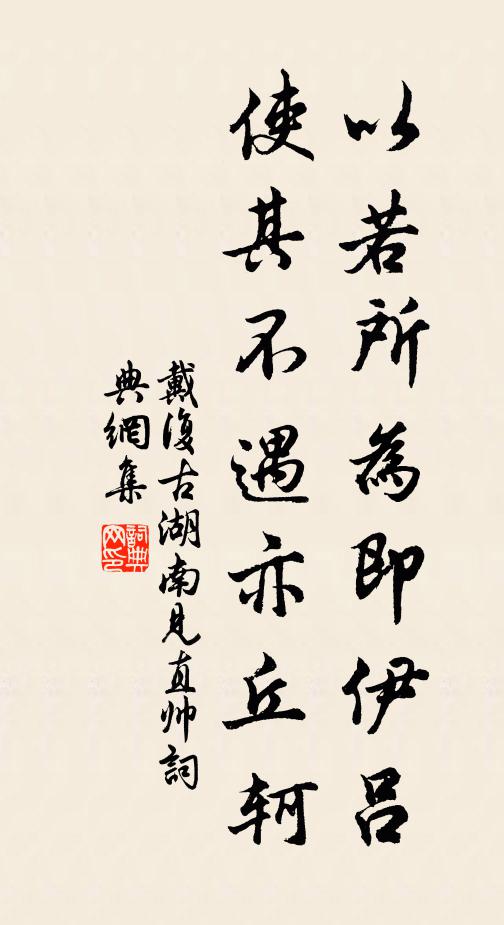 以若所為即伊呂
使其不遇亦丘軻
戴復古湖南見真帥詞
典網集
詞典網印